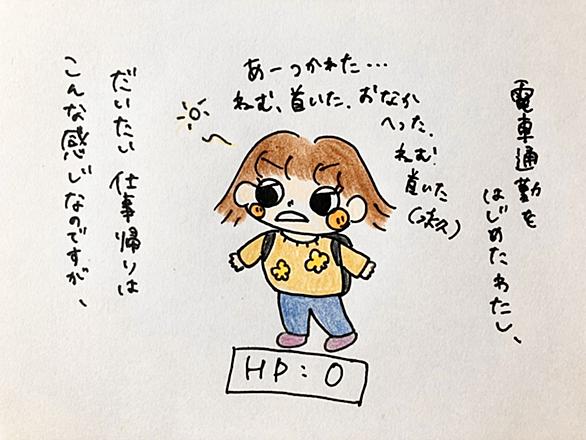 電車通勤を
はじめたわたし、
あーつかれた…
ねむ、首いた、おなか
へった、
ねむ!
首いた
だいたい仕事帰りは
こんな感じなのですが、
HP:0